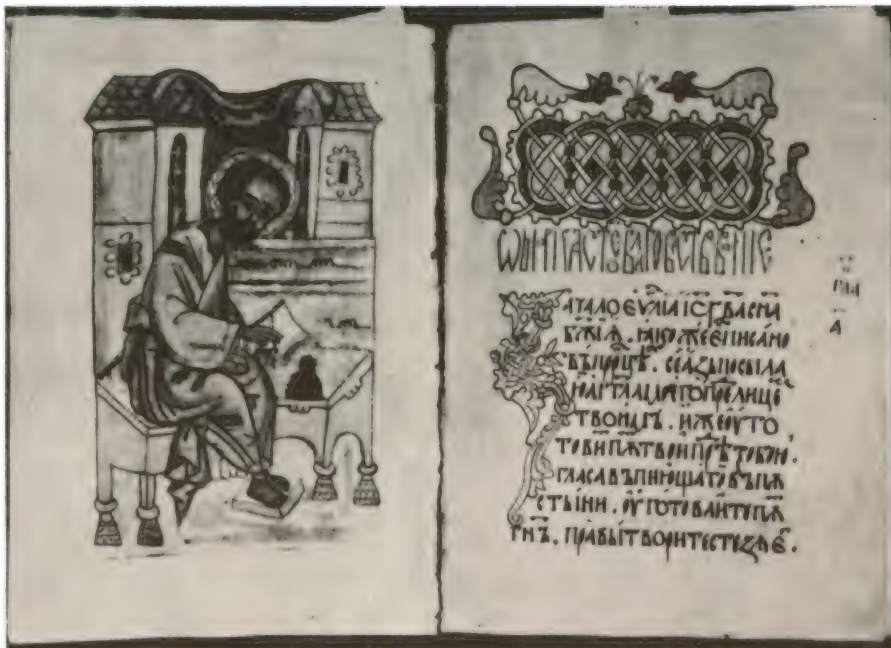 ѾМРКАСТ҃ОЕБЛАГОВѢСТВѢВАНІЕ
АЧАЛОЕѴ҃ЛІАІС҃ХВ҃АСН҃А
БЖ҃ІѦ. ꙖКОЖЕЕ҃ПИСАНО
ВЪПРОЦѢ҃. СЕАЗЪПОСЫЛА
ЮАГГ҃ЛАМОЕГОПРѢДЛИЦЕ
ТВОИМЪ. ИЖЕОУГО
ТОВИПѪТТВОИПРѢ҃ТОБОЮ.
ГЛАСАВЪПИЮЩАГОВЪПѪ
СТЫНИ. ОУГОТОВАИТЕПѪ
ГН҃Ъ. ПРАВЫТВОРИТЕСТЕЗѦЕ҃.
ГЛА
А